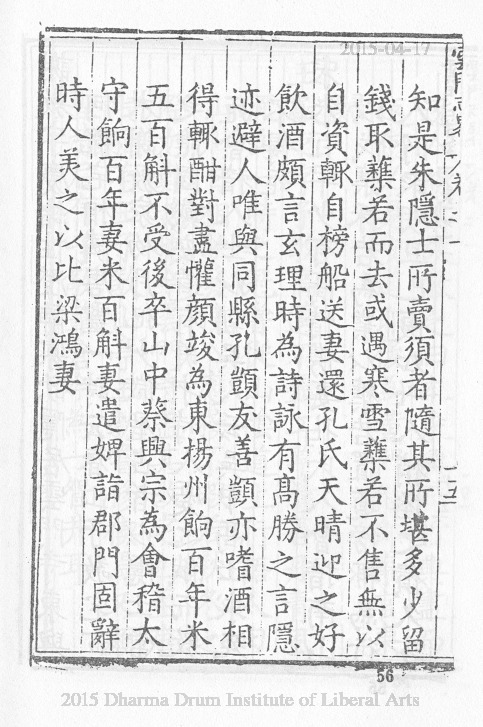 2015-04-17
知是朱隱士所賣須者隨其所堪多少留
錢取蘃若而去或遇寒雪蘃若不售無以
自資輙自榜船送妻還孔氏天晴迎之好
飲酒頗言玄理時為詩詠有髙勝之言隱
迹避人唯與同縣孔顗友善顗亦嗜酒相
得輙酣對盡懽顔竣為東揚州餉百年米
五百斛不受後卒山中蔡興宗為會稽太
守餉百年妻米百斛妻遣婢詣郡門固辭
時人美之以比梁鴻妻
十五
56
2015 Dharma Drum Institute of Liberal Arts